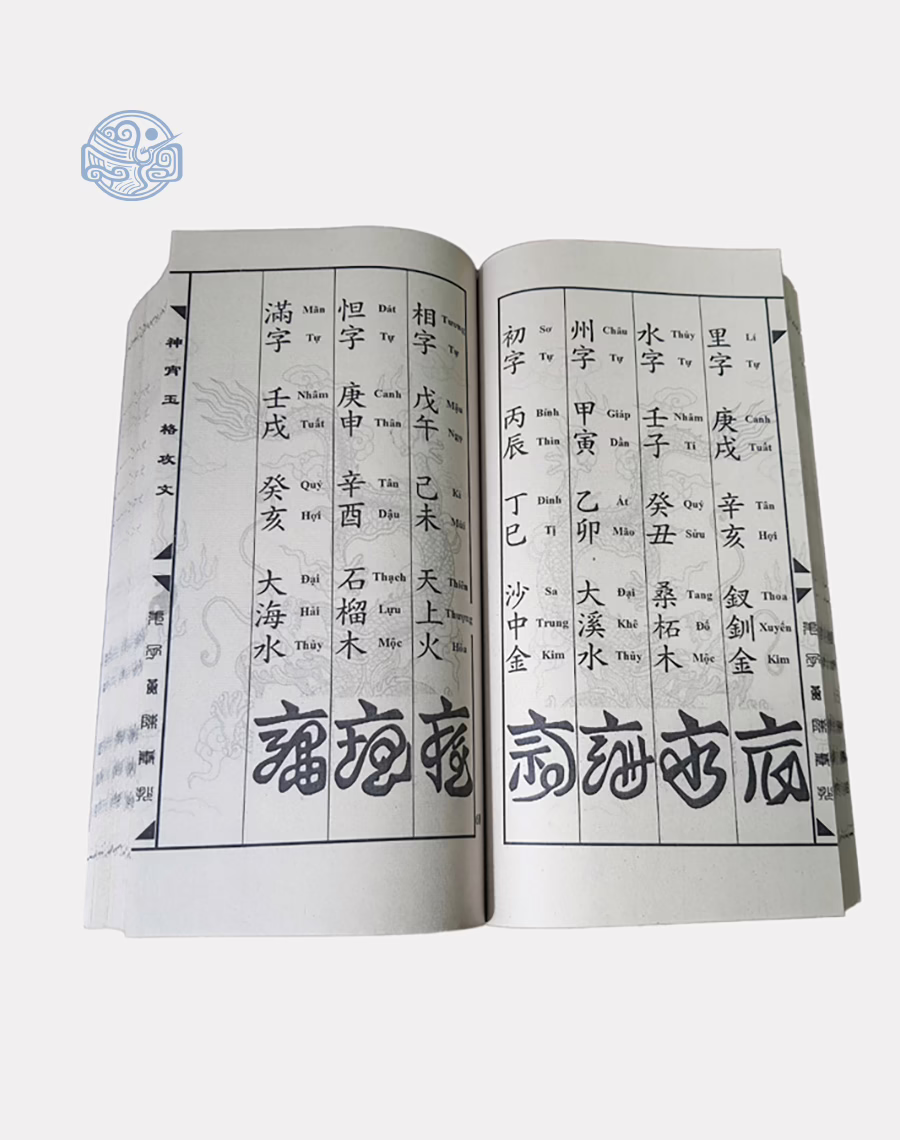 里字 Lí Tự
庚戌 Canh Tuất
辛亥 Tân Hợi
釵釧金 Thoa Xuyến Kim
水字 Thủy Tự
壬子 Nhâm Tí
癸丑 Quý Sửu
桑柘木 Tang Đố Mộc
州字 Châu Tự
甲寅 Giáp Dần
乙卯 Ất Mão
大溪水 Đại Khê Thủy
初字 Sơ Tự
丙辰 Bính Thìn
丁巳 Đinh Tị
沙中金 Sa Trung Kim
相字 Tương Tự
戊午 Mậu Ngọ
己未 Kỉ Mùi
天上火 Thiên Thượng Hỏa
怛字 Dát Tự
庚申 Canh Thân
辛酉 Tân Dậu
石榴木 Thạch Lựu Mộc
滿字 Mãn Tự
壬戌 Nhâm Tuất
癸亥 Quý Hợi
大海水 Đại Hải Thủy
神宵玉格攻文